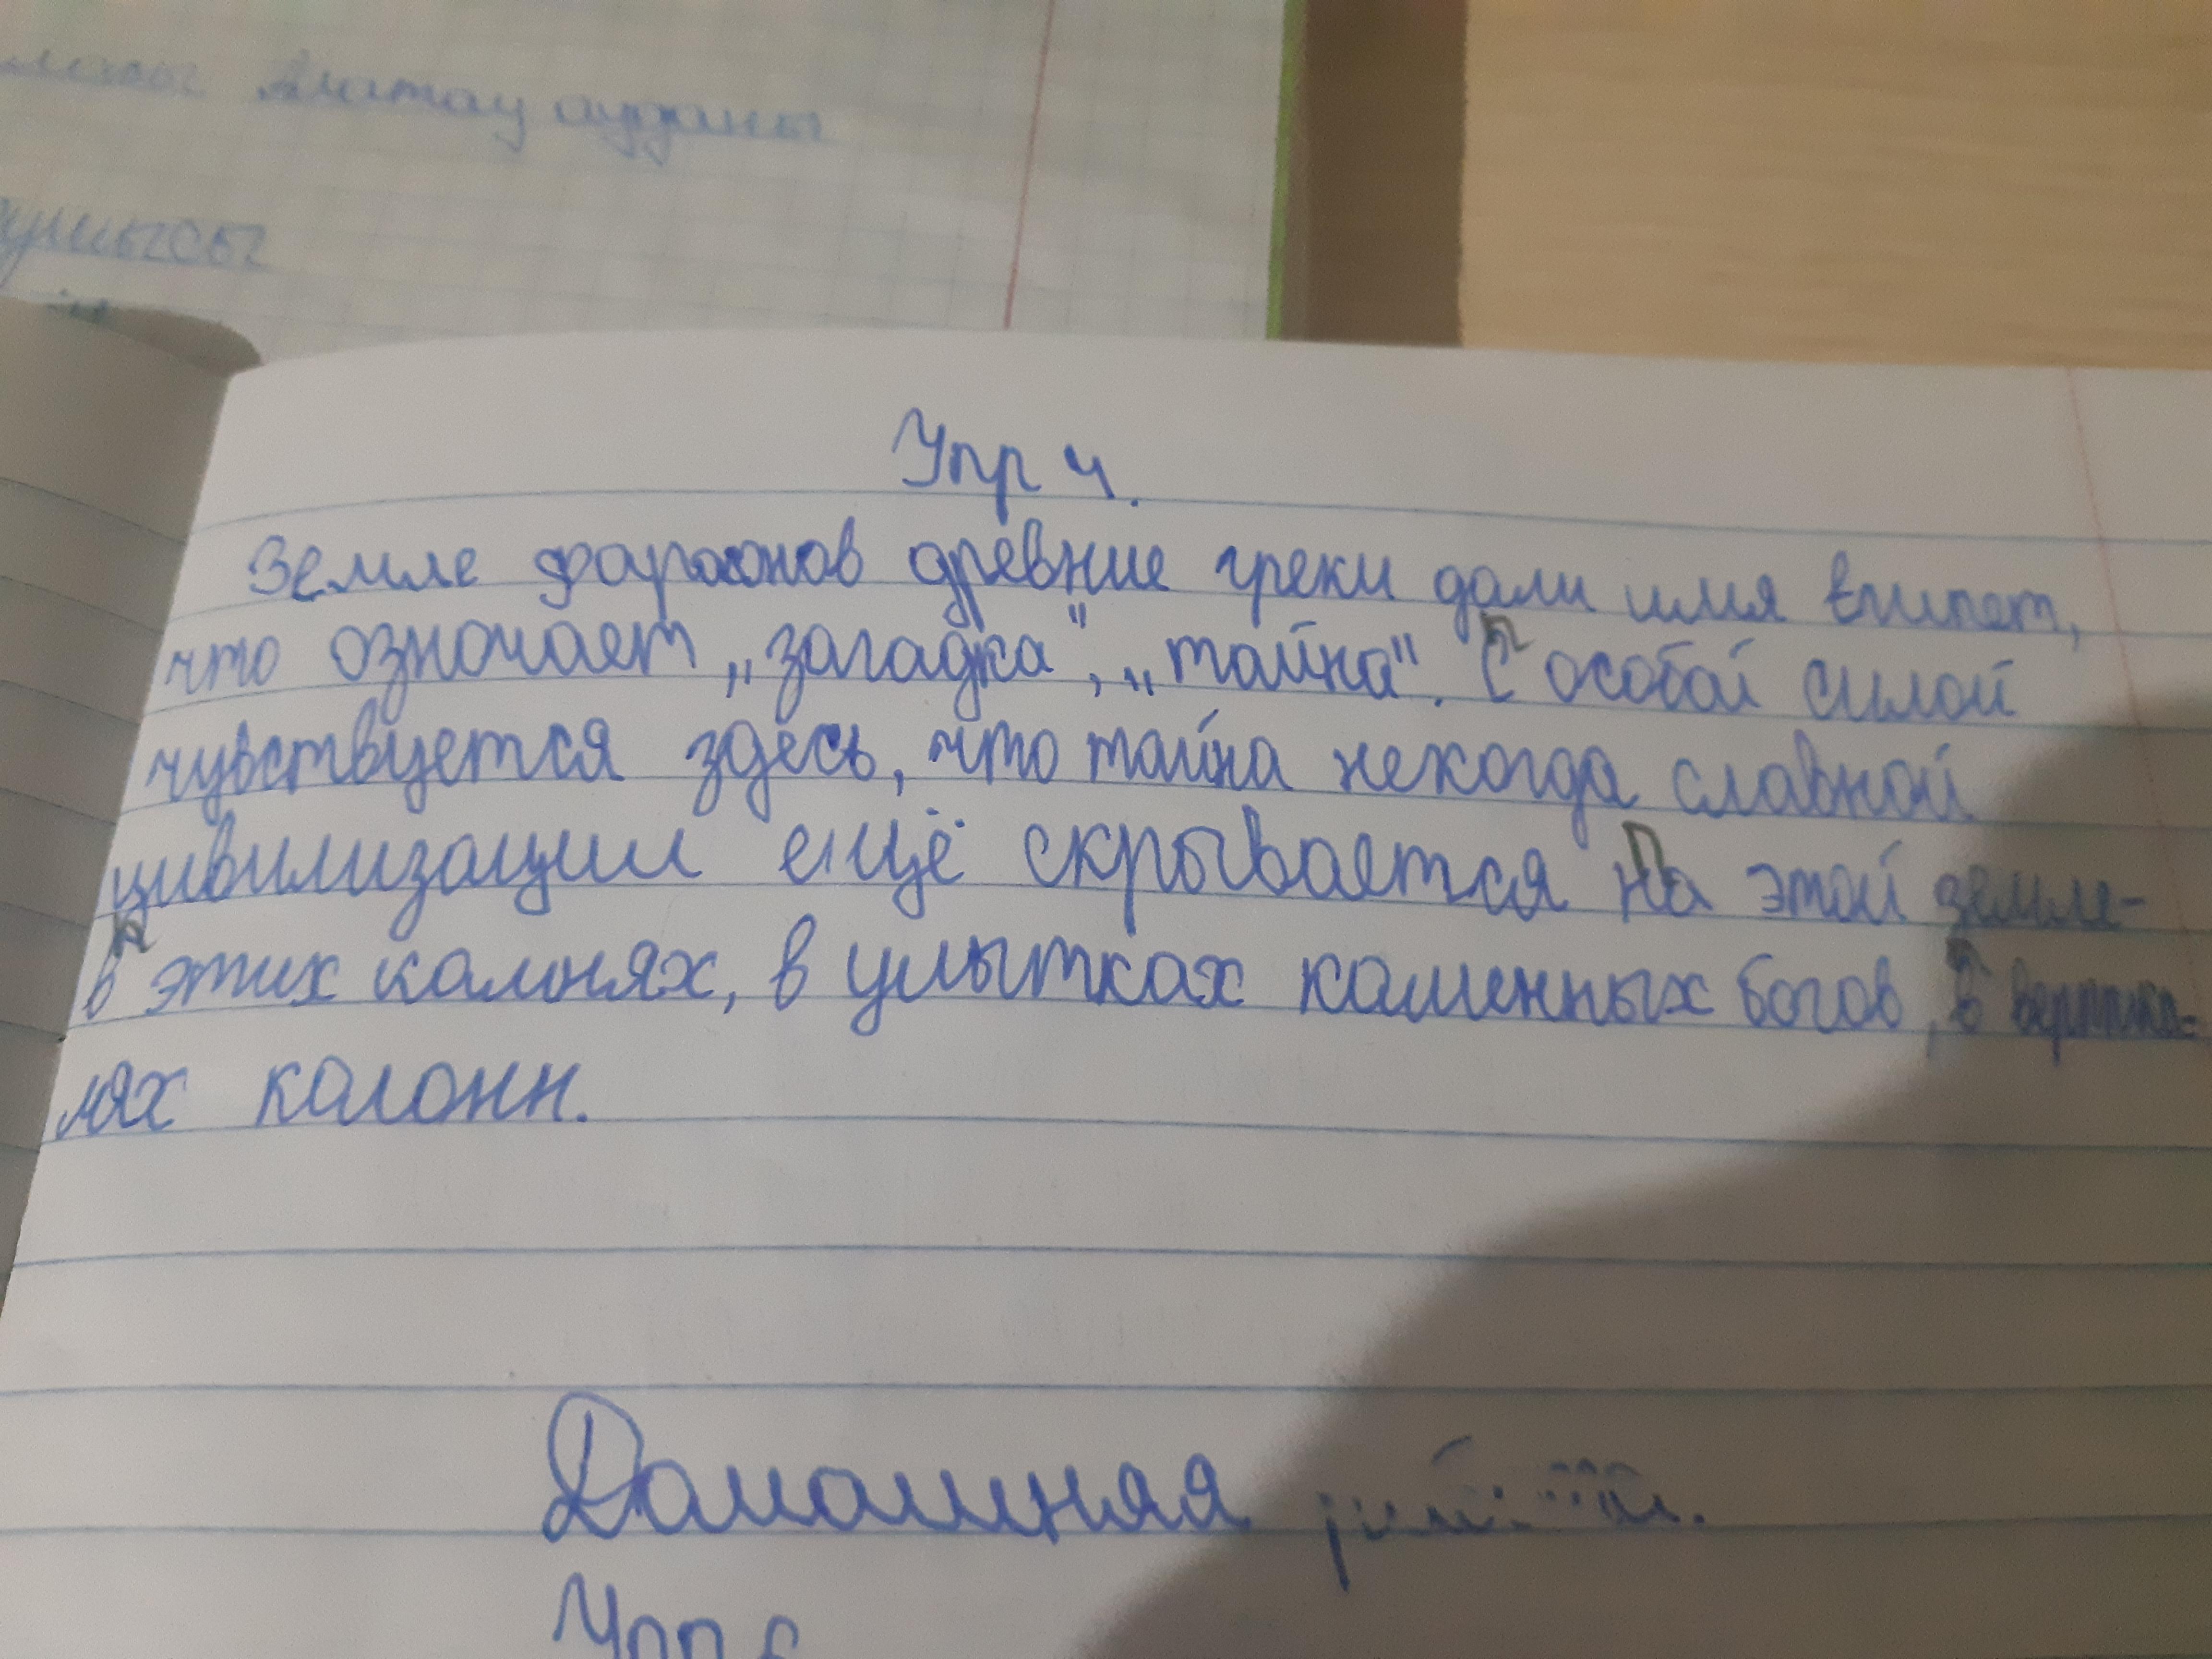 Алатау ауданы
Упр 4.
Земле фараонов древние греки дали имя Египет,
что означает „загадка", „тайна". С особой силой
чувствуется здесь, что тайна некогда славной
цивилизации ещё скрывается на этой земле-
в этих камнях, в улыбках каменных богов, в вертика-
лях колонн.
Домашняя
Упр 6